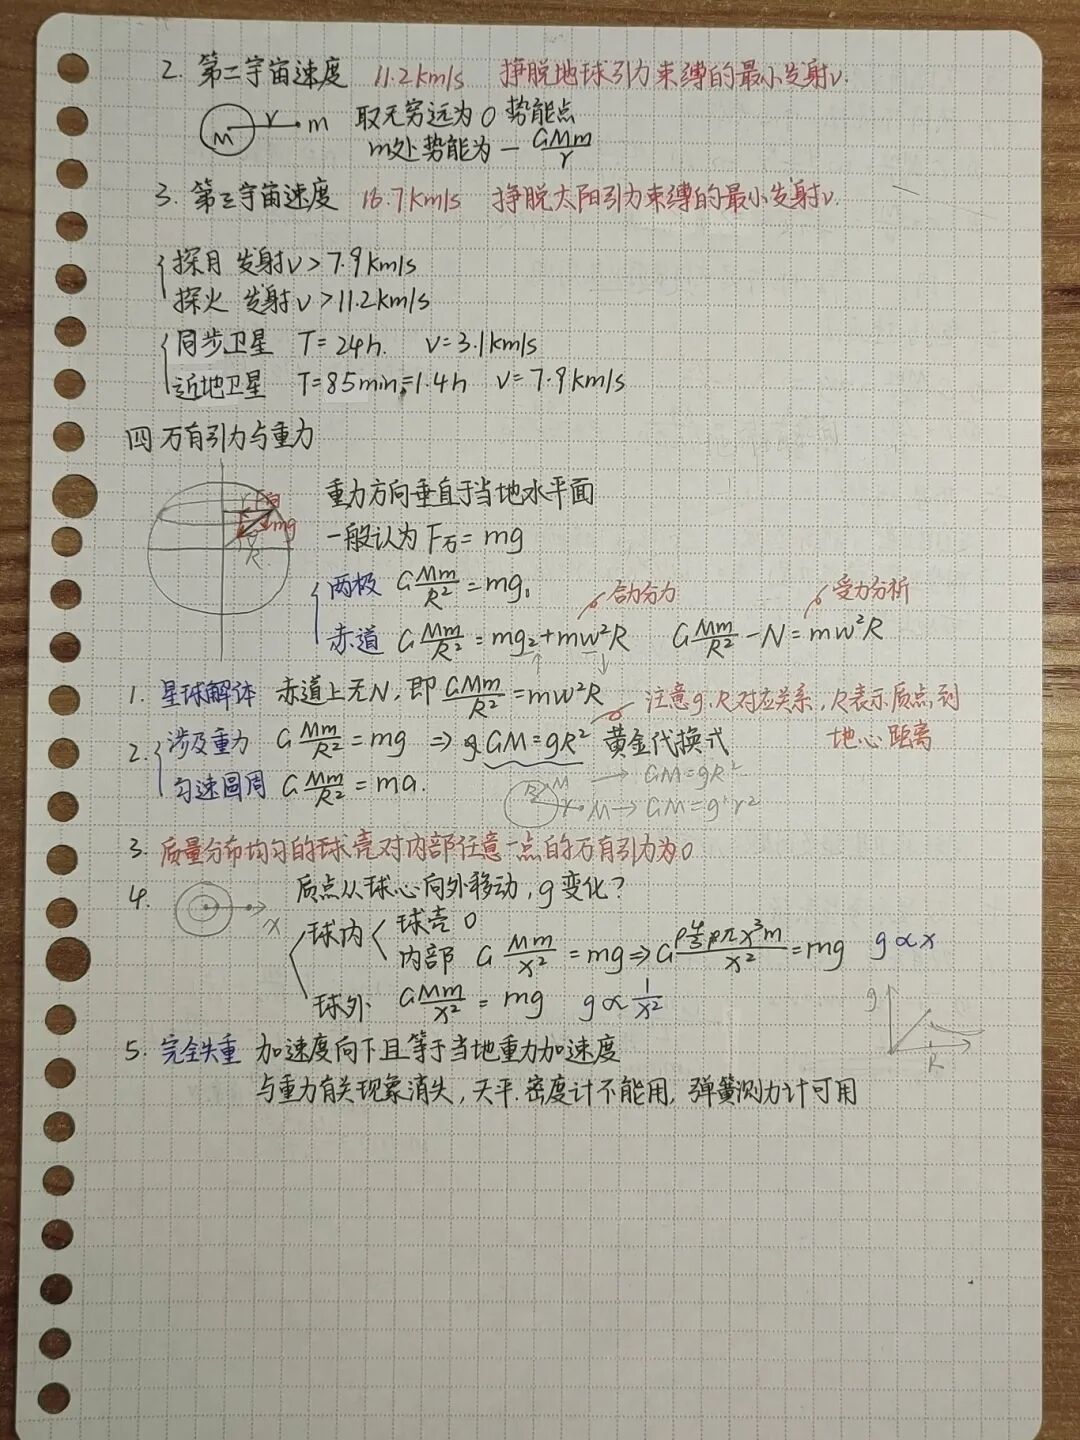 2. 第二宇宙速度 11.2km/s 挣脱地球引力束缚的最小发射v.
M r m 取无穷远为0势能点
m处势能为 -GMm/r
3. 第三宇宙速度 16.7km/s 挣脱太阳引力束缚的最小发射v.
{探月 发射v>7.9km/s
探火 发射v>11.2km/s
{同步卫星 T=24h. v=3.1km/s
近地卫星 T=85min=1.4h v=7.9km/s
四 万有引力与重力
重力方向垂直于当地水平面
r F向 mg R
一般认为 F万=mg
{两极 GMm/R²=mg₁ 合力分力 受力分析
赤道 GMm/R²=mg₂+mw²R GMm/R²-N=mw²R
1. 星球解体 赤道上无N, 即 GMm/R²=mw²R 注意g、R对应关系, R表示质点到
地心距离
2. {涉及重力 GMm/R²=mg ⇒ GM=gR² 黄金代换式
匀速圆周 GMm/R²=ma.
R M → GM=gR²
r M → GM=g'r²
3. 质量分布均匀的球壳对内部任意一点的万有引力为0
4. x 质点从球心向外移动, g变化?
球内 < 球壳 0
内部 GMm/x²=mg ⇒ G ρ4/3πx³m/x²=mg g∝x
球外 GMm/x²=mg g∝1/x²
g R
5. 完全失重 加速度向下且等于当地重力加速度
与重力有关现象消失, 天平. 密度计不能用, 弹簧测力计可用